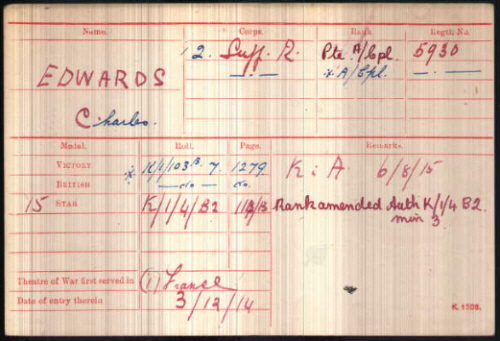 Name. Corps. Rank. Regtl. No.
EDWARDS 2. Suff. R. Pte. A/Cpl. 5930
—.— * A/Cpl. —.—
Charles.
Medal. Roll. Page. Remarks.
VICTORY * K/1/103 B 7. 1279. K i A 6/8/15
BRITISH — do — do.
15 STAR K/1/4/B2 Rank amended Auth K/1/4 B2.
min 3
Theatre of War first served in (1) France
Date of entry therein 3/12/14
K. 1308.